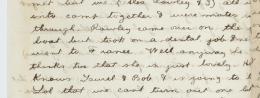 met but we (Les Rawley & I) all w
into camp together & were mates r
through. Rawley came over on the
boat but took on a dental job & ne
went to France. Well anyway he
thinks too that she is just lovely. He
knows Jewel & Bob & is going to
Lol that we can't turn out one bet